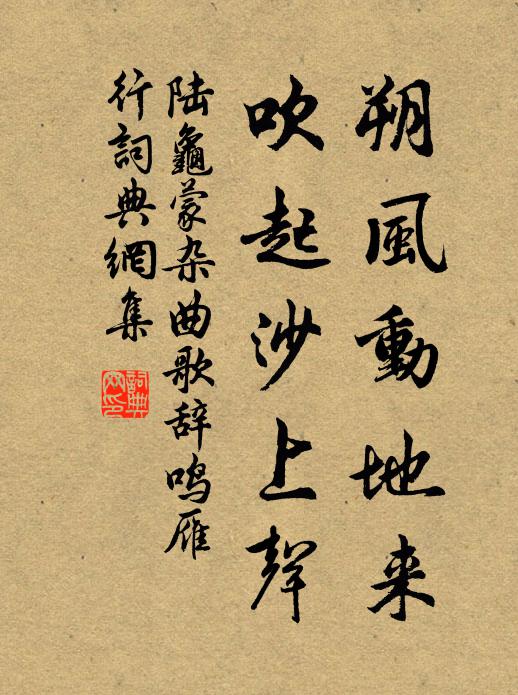 朔風動地来
吹起沙上聲
陆龜蒙杂曲歌辞鸣雁
行詞典網集
詞典
网印